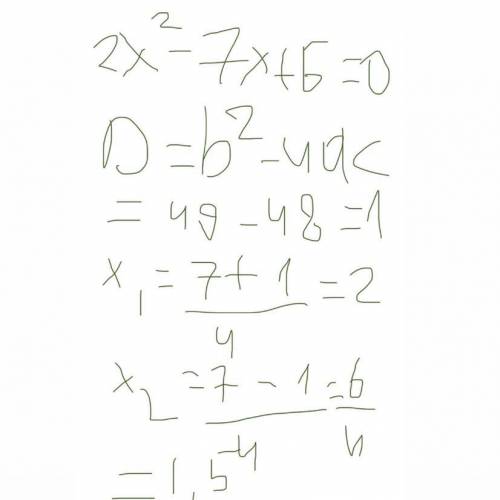 2x² - 7x + 6 = 0
D = b² - 4ac
= 49 - 48 = 1
x₁ = (7 + 1)/4 = 2
x₂ = (7 - 1)/4 = 6/4
= 1,5